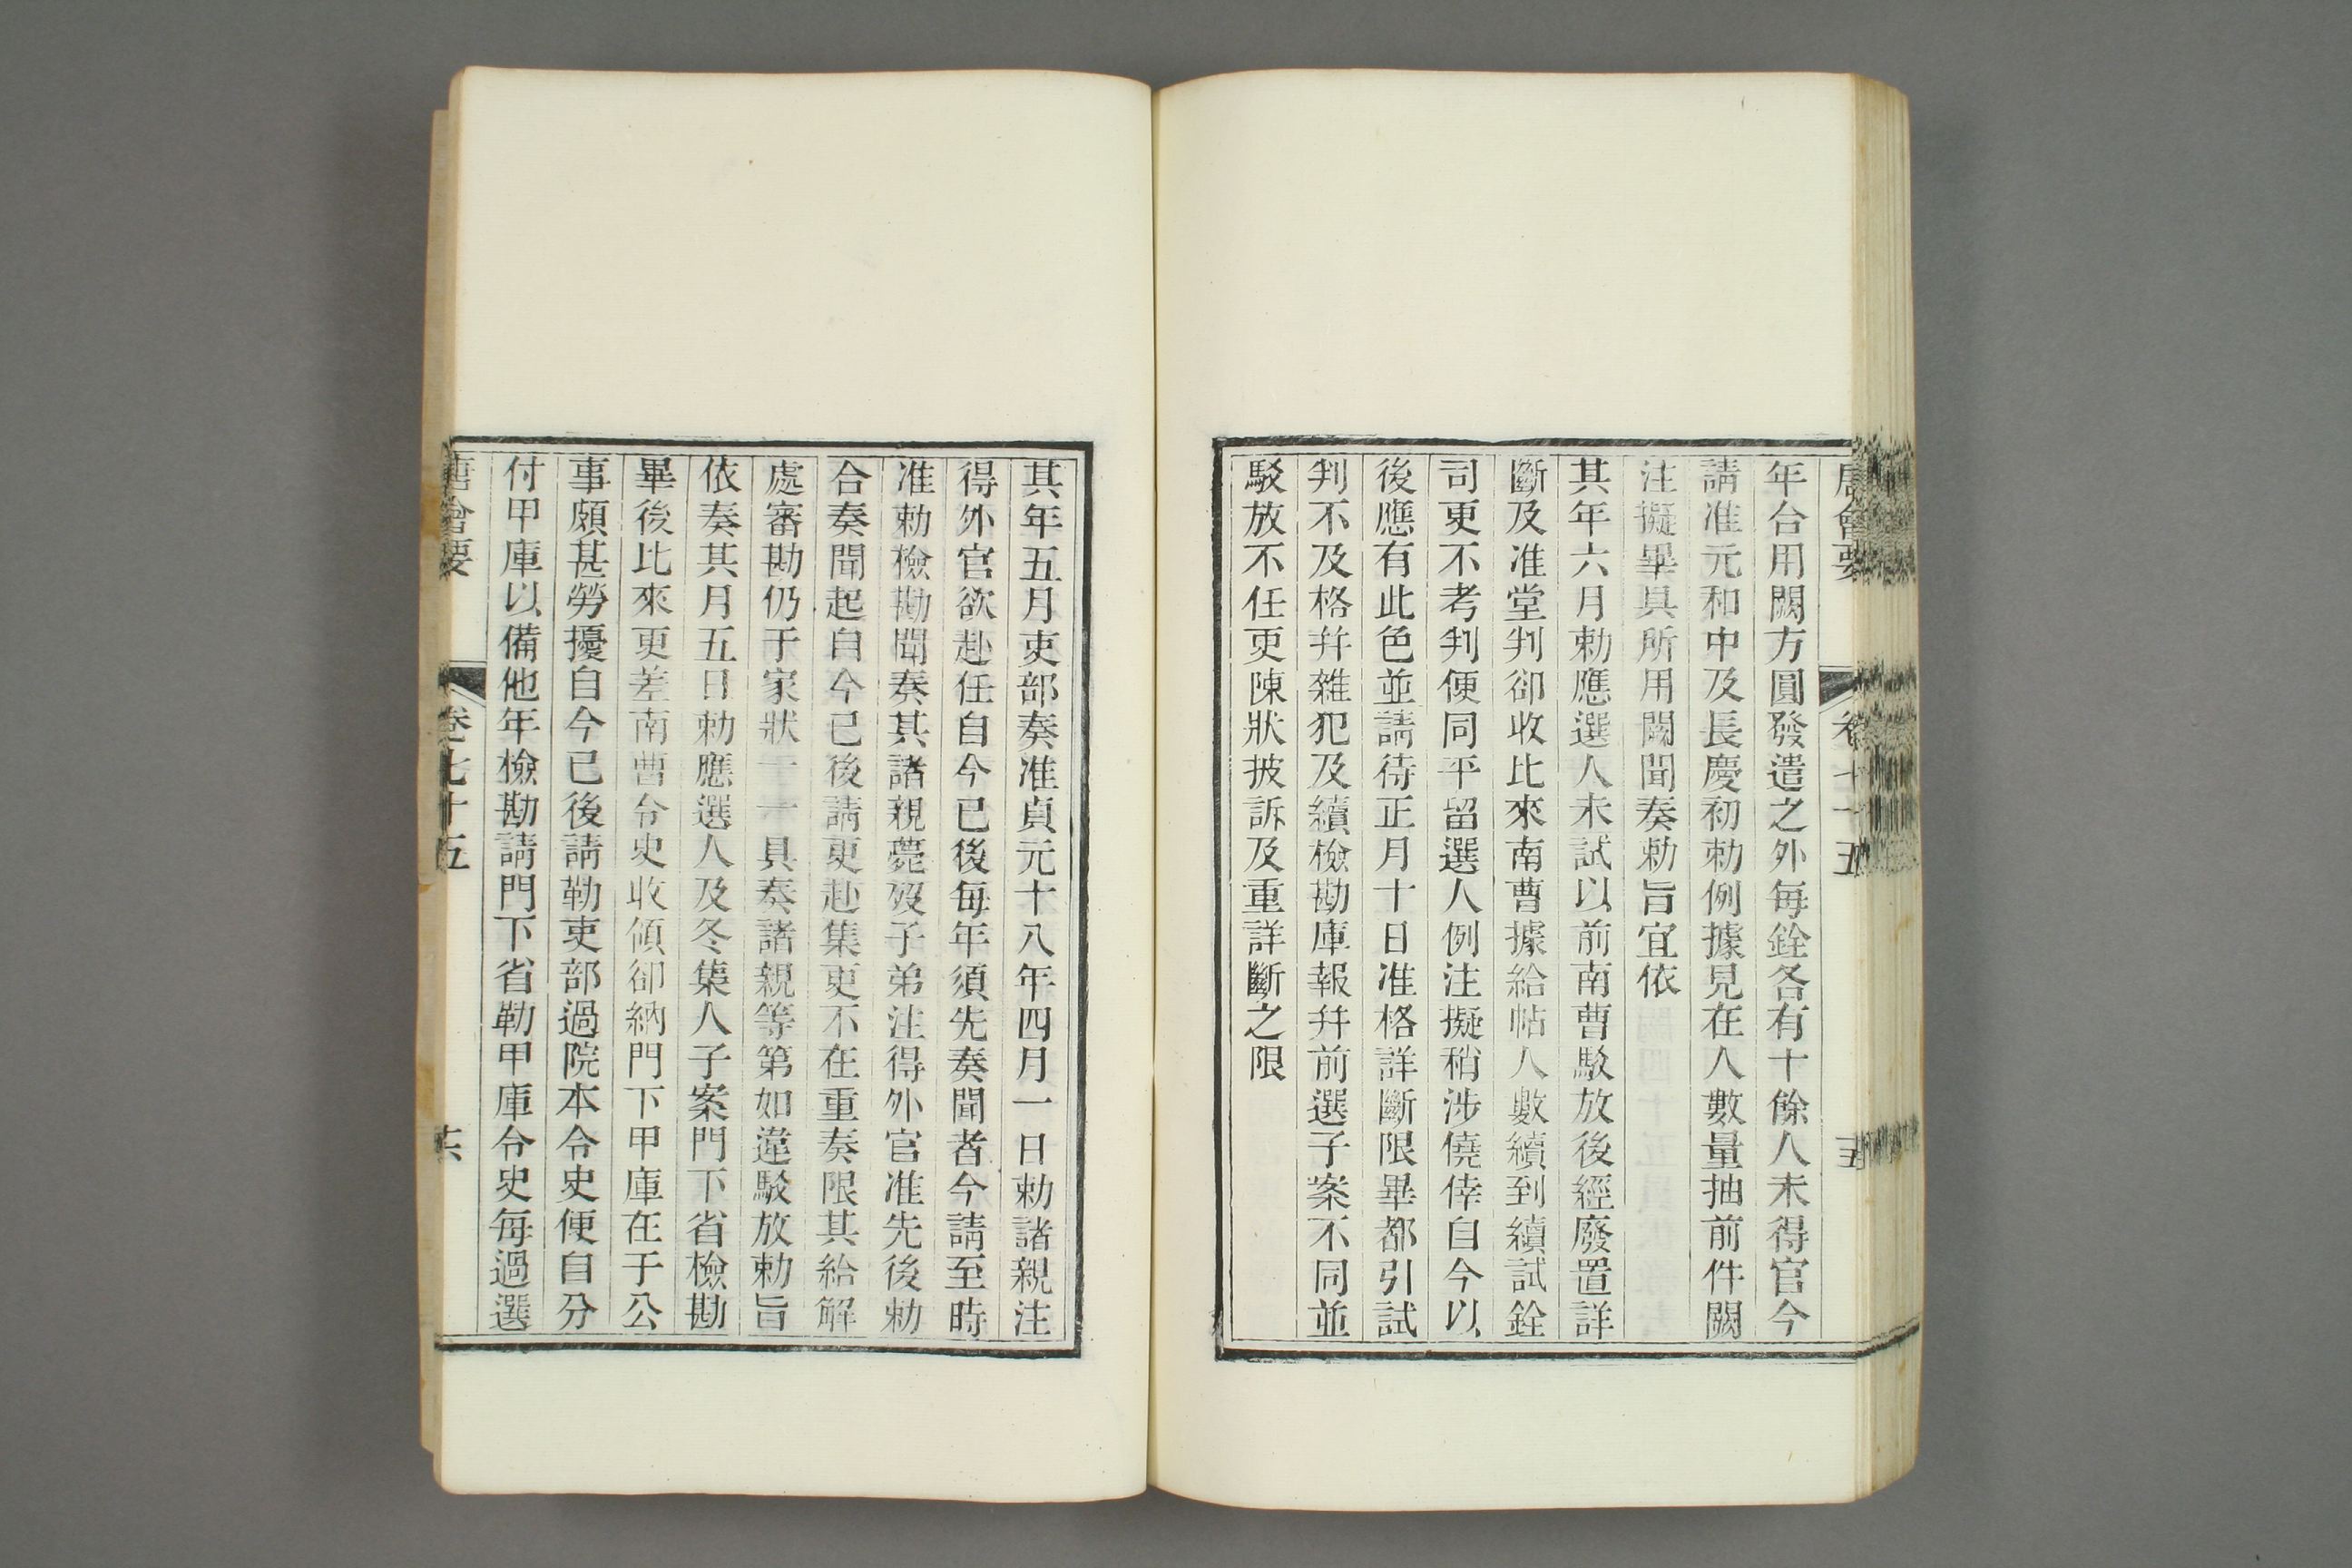 唐會要 卷七十五
年合用闕方圓發遣之外每銓各有十餘人未得官今
請准元和中及長慶初勅例據見在人數量抽前件闕
注擬畢具所用闕聞奏勅旨宜依
其年六月勅應選人未試以前南曹駁放後經廢置詳
斷及准堂判卻收比來南曹據給帖人數續到續試銓
司更不考判便同平留選人例注擬稍涉僥倖自今以
後應有此色並請待正月十日准格詳斷限畢都引試
判不及格幷雜犯及續檢勘庫報幷前選子案不同並
駁放不任更陳狀披訴及重詳斷之限
其年五月吏部奏准貞元十八年四月一日勅諸親注
得外官欲赴任自今已後每年須先奏聞者今請至時
准勅檢勘聞奏其諸親薨歿子弟注得外官准先後勅
合奏聞起自今已後請更赴集更不在重奏限其給解
處審勘仍于家狀一一具奏諸親等第如違駁放勅旨
依奏其月五日勅應選人及冬集人子案門下省檢勘
畢後比來更差南曹令史收傾卻納門下甲庫在于公
事頗甚勞擾自今已後請勒吏部過院本令史便自分
付甲庫以備他年檢勘請門下省勒甲庫令史每過選
唐會要 卷七十五 十六